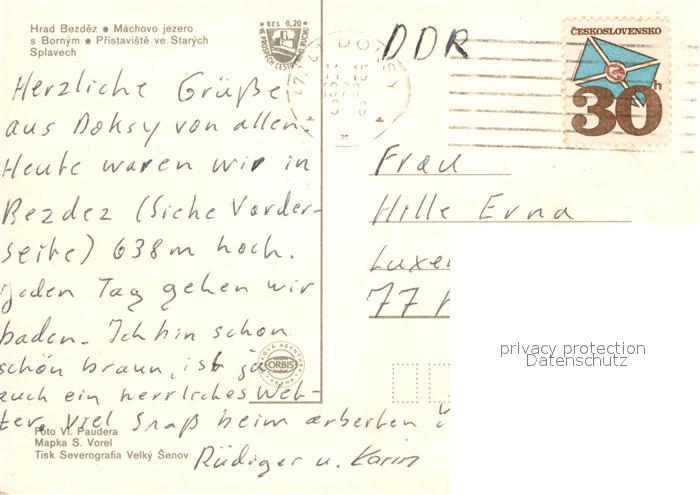 Hrad Bezděz • Máchovo jezero
s Borným • Přístaviště ve Starých
Splavech
Kčs 0,20
DOKSY
ČESKOSLOVENSKO
30h
DDR
Herzliche Grüße
aus Doksy von allen.
Heute waren wir in
Bezdez (Siehe Vorder-
seite) 638m hoch.
jeden Tag gehen wir
baden. Ich bin schon
schön braun, ist ja
auch ein herrliches Wet-
ter. Viel Spaß beim arbeiten
Rüdiger u. Karin
Frau
Hille Erna
Luxe
77
ORBIS
Foto Vl. Paudera
Mapka S. Vorel
Tisk Severografia Velký Šenov
privacy protection
Datenschutz